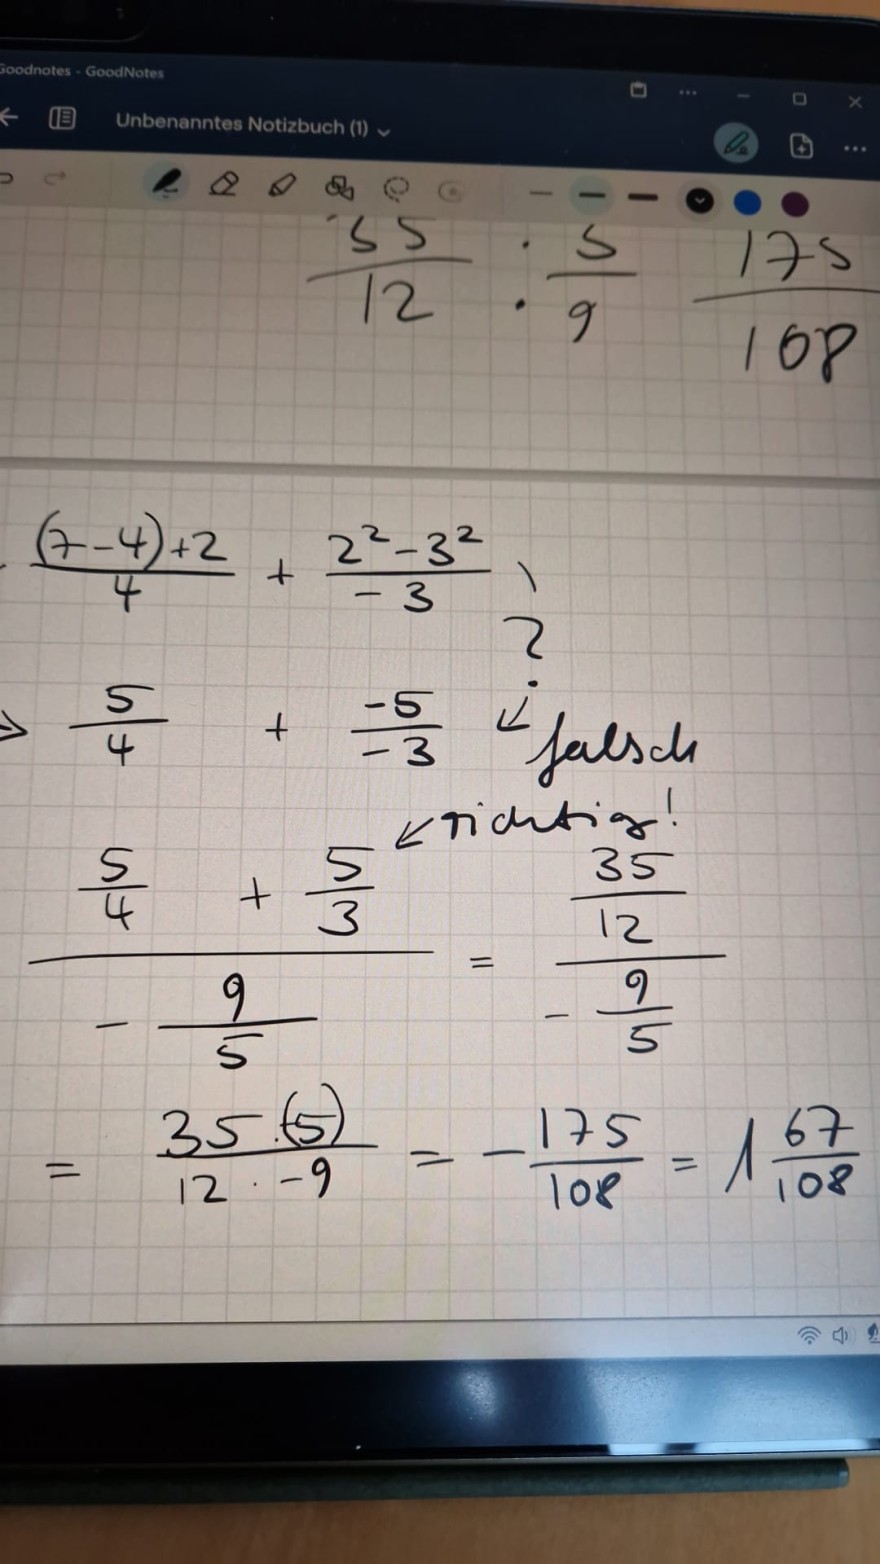 Goodnotes - GoodNotes
Unbenanntes Notizbuch (1)
35/12 : 5/9 175/108
((7-4)+2)/4 + (2²-3²)/-3 ?
5/4 + -5/-3 ↙ falsch
↙ richtig!
(5/4 + 5/3)/(- 9/5) = (35/12)/(- 9/5)
= (35·(5))/(12 · -9) = - 175/108 = 1 67/108